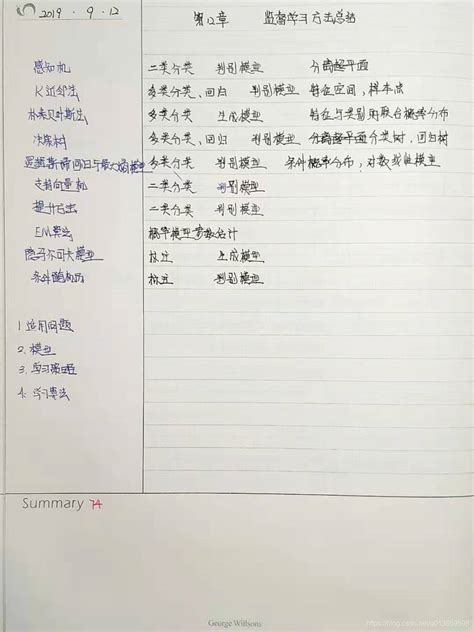 2019.9.12 第12章 监督学习方法总结
感知机 二类分类 判别模型 分离超平面
K近邻法 多类分类、回归 判别模型 特征空间，样本点
朴素贝叶斯法 多类分类 生成模型 特征与类别的联合概率分布
决策树 多类分类，回归 判别模型 分类树，回归树
逻辑斯谛回归与最大熵模型 多类分类 判别模型 条件概率分布，对数线性模型
支持向量机 二类分类 判别模型
提升方法 二类分类 判别模型
EM算法 概率模型参数估计
隐马尔可夫模型 标注 生成模型
条件随机场 标注 判别模型
1.适用问题
2.模型
3.学习策略
4.学习算法
Summary 74
George Willsons